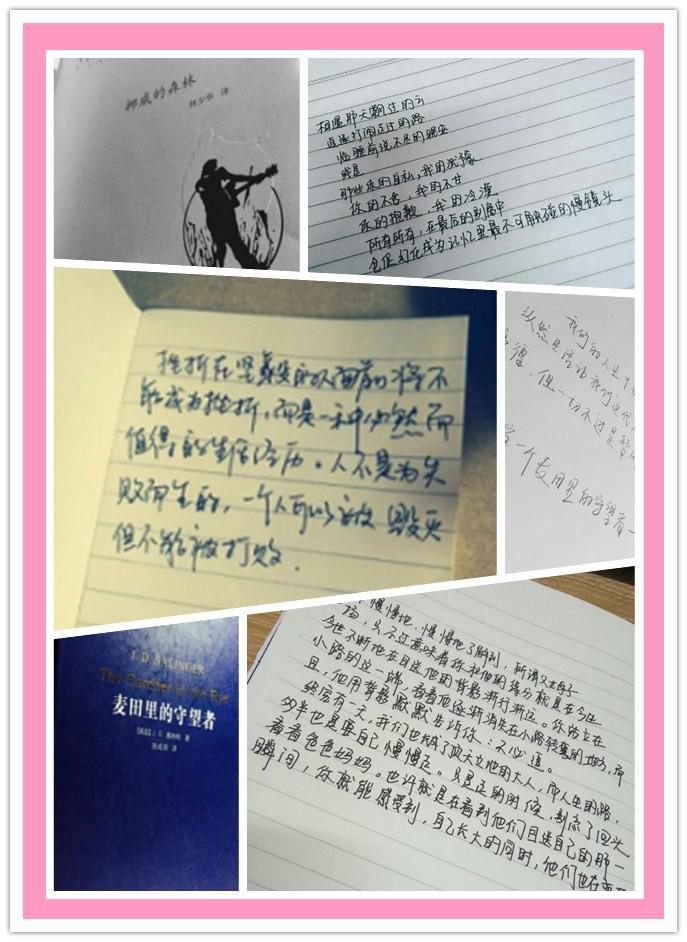 挪威的森林
林少华 译
相遇那天飘过的云
追逐打闹走过的路
临睡前说不尽的晚安
就是
那些你的自私,我的犹豫
你的不舍,我的不甘
你的抱歉,我的冷漠
所有所有,在最后的别离中
成为记忆里最不可触碰的慢镜头
挫折在坚毅的人面前将不
能成为挫折,而是一种必然而
值得的生活经历。人不是为失
败而生的,一个人可以被毁灭
但不能被打败.
我们的人生
纵然生活让我们
但一切不过是
一个麦田里的守望者
J. D. SALINGER
The Catcher in the Rye
麦田里的守望者
[美国] J. D. 塞林格 著
施咸荣 译
慢慢地,慢慢地了解到,所谓父母子
场,只不过意味着你和他的缘分就是在今生
今世不断地在目送他的背影渐行渐远。你站立在
小路的这一端,看着他逐渐消失在小路转弯的地方,而
且,他用背影默默告诉你:不必追。
终究有一天,我们也长成了顶天立地的大人,而人生的路,
多半也是要自己慢慢走。只是走的时候,别忘了回头
看看爸爸妈妈。也许就是在看到他们目送自己的那一
瞬间,你就能感受到,自己长大的同时,他们也在